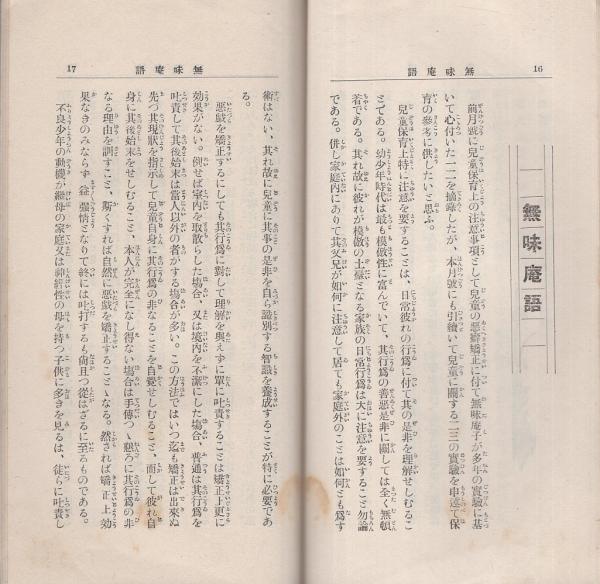 16
無味庵語
無味庵語
前月號に兒童保育上の注意事項として兒童の惡癖矯正に付て無味庵子が多年の實驗に基
いて心付いた一二を摘錄したが、本月號にも引續いて兒童に關する二三の實驗を申述て保
育の參考に供したいと思ふ。
兒童保育上特に注意を要することは、日常彼れの行爲に付て其の是非を理解せしむるこ
とである。幼少年時代は最も模倣性に富んでいて、其行爲の善惡是非に關しては全く無頓
着である。其れ故に彼れが模倣の土臺となる家族の日常行爲は大に注意を要すること勿論
である。併し家庭內にありて其父兄が如何に注意して居ても家庭外のことは如何とも爲す
17
無味庵語
術はない、其れ故に兒童に其事の是非を自ら識別する智識を養成することが特に必要であ
る。
惡戲を矯正するにしても其行爲に對して理解を與えずに單に叱責することは矯正上更に
効果がない。例せば室內を取散らした場合、又は境內を不潔にした場合、普通は其行爲を
叱責して其後始末は當人以外の者がする場合が多い。この方法ではいつ迄も矯正は出來ぬ
先づ其現狀を指示して兒童自身に其行爲の非なることを自覺せしむること、而して彼れ自
身に其後始末をせしむること、本人が完全になし得ない場合は手傳つゝ懇ろに其行爲の非
なる理由を訓すこと、斯くすれば自然に惡戲を矯正することゝなる。然されば矯正上効
果なきのみならず、益強情となりて終には叱打するも尙且つ從はざるに至るものである。
不良少年の動機が繼母の家庭又は神經性の母を持つ子供に多きを見るは、徒らに叱責し